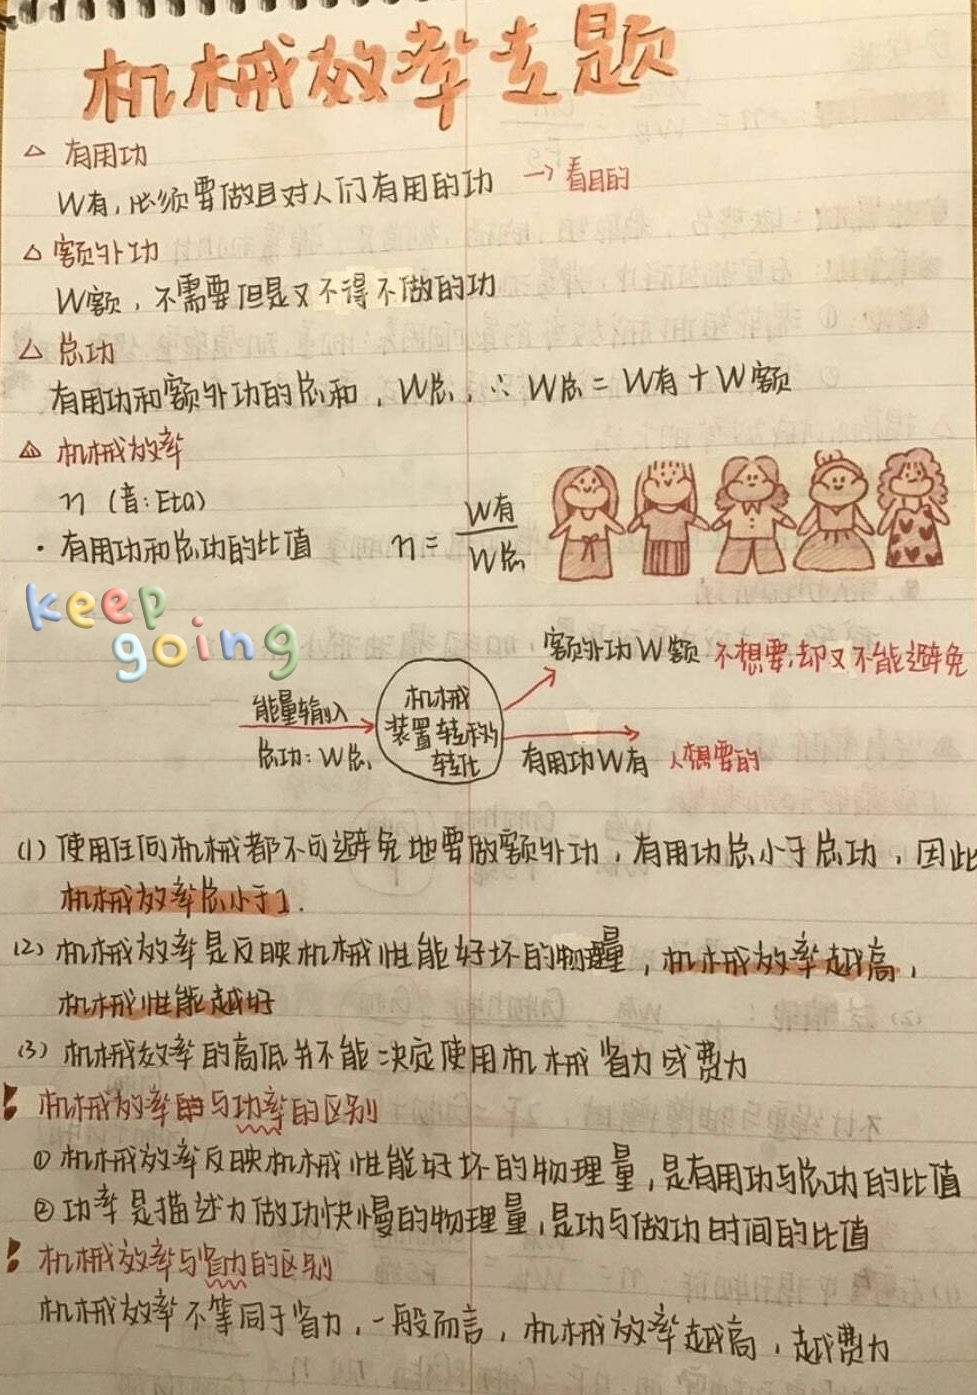 机械效率专题
△ 有用功
W有，必须要做且对人们有用的功 → 看目的
△ 额外功
W额，不需要但是又不得不做的功
△ 总功
有用功和额外功的总和，W总，∴ W总 = W有 + W额
△ 机械效率
η （音：Eta）
· 有用功和总功的比值 η = W有/W总
keep
going
额外功W额 不想要，却又不能避免
能量输入
总功：W总
机械
装置转移
转化
有用功W有 人想要的
(1) 使用任何机械都不可避免地要做额外功，有用功总小于总功，因此
机械效率总小于1.
(2) 机械效率是反映机械性能好坏的物理量，机械效率越高，
机械性能越好
(3) 机械效率的高低并不能决定使用机械省力或费力
! 机械效率与功率的区别
① 机械效率反映机械性能好坏的物理量，是有用功与总功的比值
② 功率是描述力做功快慢的物理量，是功与做功时间的比值
! 机械效率与省力的区别
机械效率不等同于省力，一般而言，机械效率越高，越费力